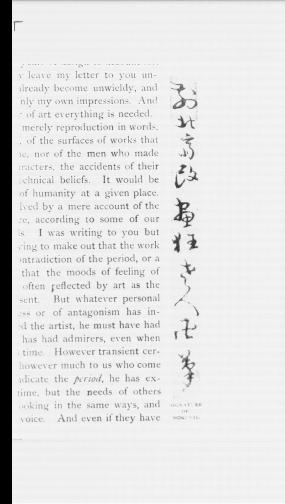 leave my letter to you un-
already become unwieldy, and
my own impressions. And
of art everything is needed.
merely reproduction in words,
of the surfaces of works that
nor of the men who made
the accidents of their
beliefs. It would be
of humanity at a given place.
by a mere account of the
according to some of our
I was writing to you but
to make out that the work
of the period, or a
that the moods of feeling of
often reflected by art as the
But whatever personal
or of antagonism has in-
the artist, he must have had
has had admirers, even when
time. However transient cer-
however much to us who come
the period, he has ex-
time, but the needs of others
in the same ways, and
voice. And even if they have
前北斎改畫狂老人卍筆
SIGNATURE
OF
HOKUSAI.